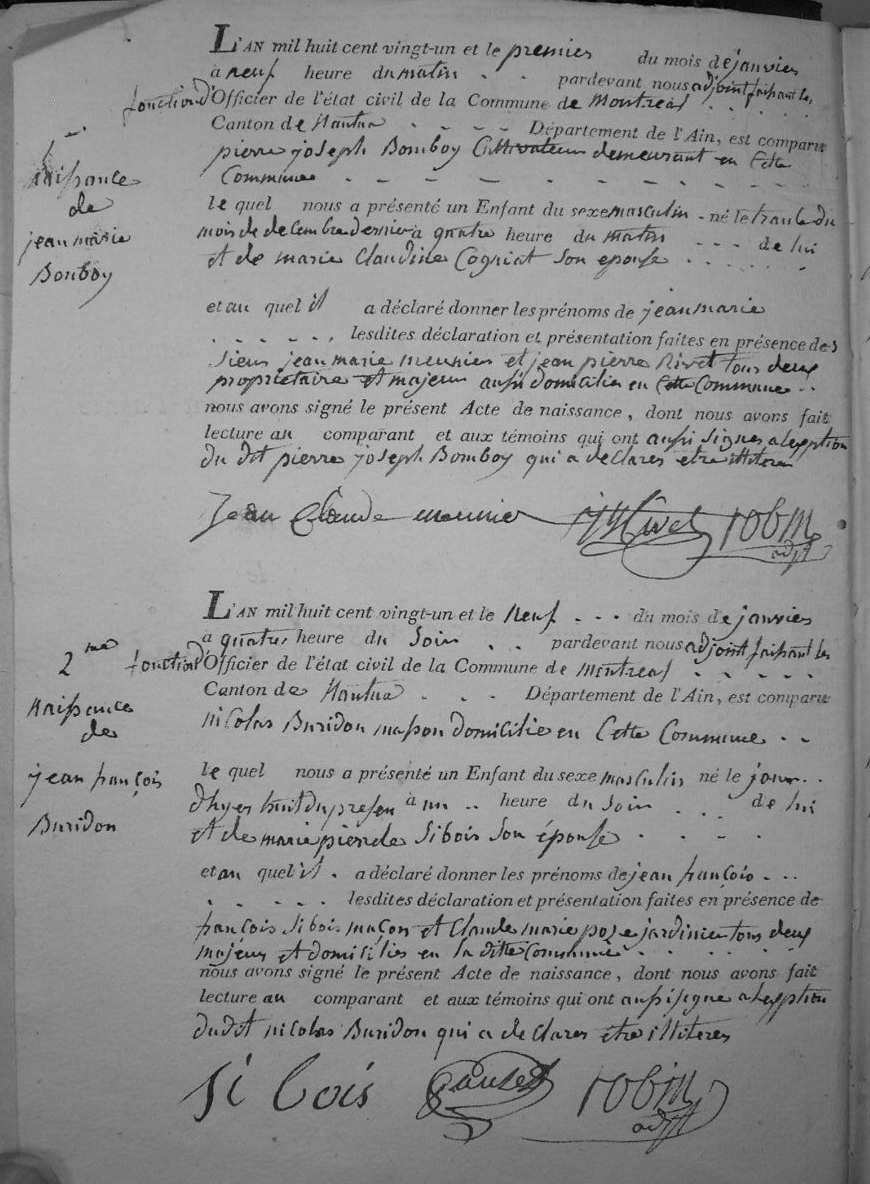 L'AN mil huit cent vingt-un et le premier du mois de janvier
à neuf heure du matin . . pardevant nous adjoint faisant les
fonction d'Officier de l'état civil de la Commune de Montreal . .
Canton de Nantua - - - - Département de l'Ain, est comparu
pierre joseph Bomboy Cultivateur demeurant en Cette
Commune - - - - - - - - - -
1re
Naissance
de
jean marie
Bonboy
le quel nous a présenté un Enfant du sexe masculin - né le trante du
mois de decembre dernier à quatre heure du matin - - - de lui
et de marie Claudine Cogniat son epouse . . . . .
et au quel il a déclaré donner les prénoms de jean marie
. . . . . . lesdites déclaration et présentation faites en présence des
sieur jean marie meunier et jean pierre Rivet tous deux
propriétaire et majeur aussi domicilies en Cette Commune . .
nous avons signé le présent Acte de naissance, dont nous avons fait
lecture au comparant et aux témoins qui ont aussi signes a lexption
du dit pierre joseph Bomboy qui a declares etre illiteres
Jean Claude meunier jp Rivet robin
adjt
L'AN mil huit cent vingt-un et le Neuf - - - du mois de janvier
à quatre heure du Soir . . pardevant nous adjoint faisant les
fonction d'Officier de l'état civil de la Commune de Montreal . . . . .
Canton de Nantua . - - Département de l'Ain, est comparu
nicolas Buridon masson domicilie en Cette Commune . .
2me
Naissance
de
jean françois
Buridon
le quel nous a présenté un Enfant du sexe masculin né le jour . .
dhyer huit du presen à un .. heure du Soir . . . de lui
et de marie pierrete Sibois Son épouse . . - -
et au quel il . a déclaré donner les prénoms de jean françois . . .
. - . . . lesdites déclaration et présentation faites en présence de
françois Sibois maçon et Claude marie jardinier tous deux
majeur et domicilies en la ditte Commune . . . . . .
nous avons signé le présent Acte de naissance, dont nous avons fait
lecture au comparant et aux témoins qui ont aussi signe a lexption
dudit nicolas Buridon qui a declares etre illiteres
Si bois robin
adjt